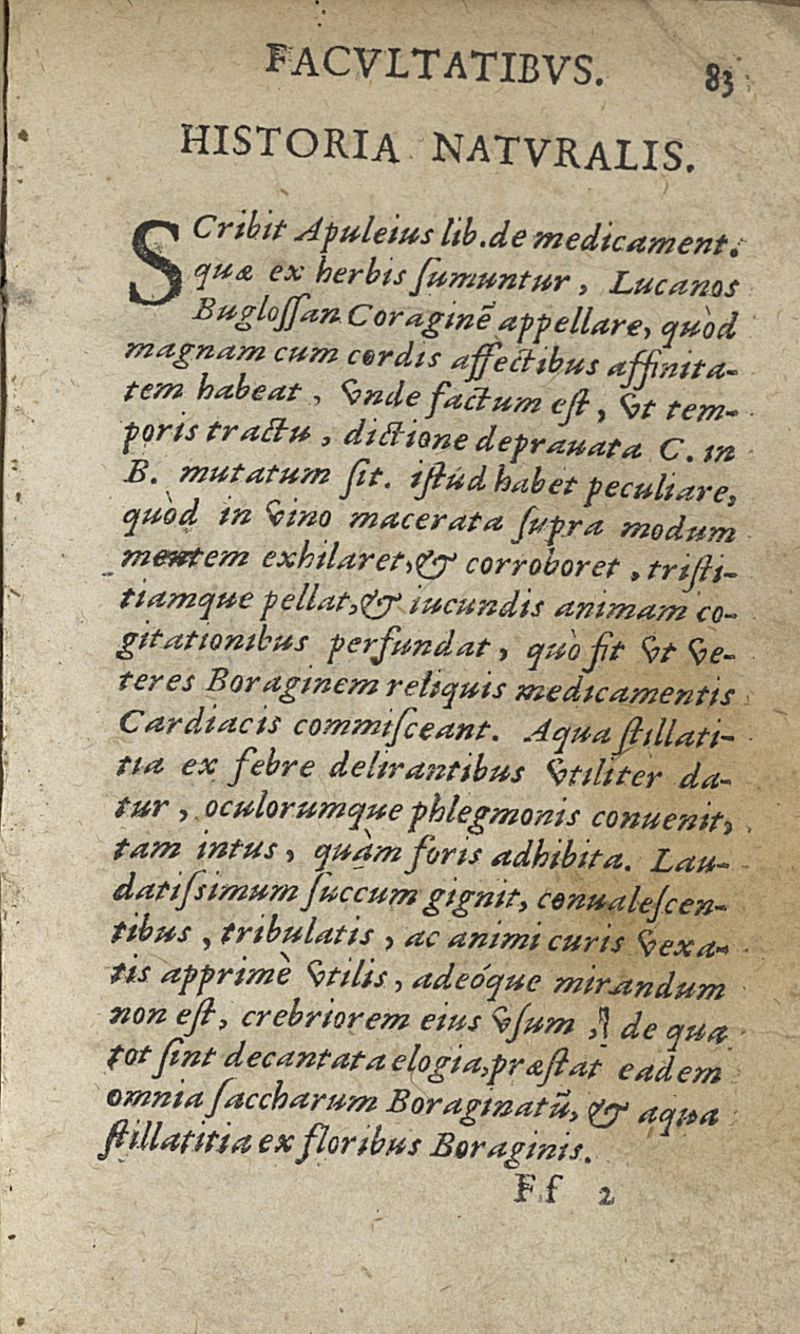 FACVLTATIBVS. 83
HISTORIA NATVRALIS.
SCribit Apuleius lib. de medicament.
quæ ex herbis ſumuntur, Lucanos
Bugloſſan Coraginẽ appellare, quòd
magnam cum cordis affectibus affinita-
tem habeat, vnde factum eſt, vt tem-
poris tractu, dictione deprauata C. in
B. mutatum ſit. iſtud habet peculiare,
quòd in vino macerata ſupra modum
mentem exhilaret, & corroboret, triſti-
tiamque pellat, & iucundis animam co-
gitationibus perfundat, quò fit vt ve-
teres Boraginem reliquis medicamentis
Cardiacis commiſceant. Aqua ſtillati-
tia ex febre delirantibus vtiliter da-
tur, oculorumque phlegmonis conuenit,
tam intus, quàm foris adhibita. Lau-
datiſsimum ſuccum gignit, conualeſcen-
tibus, tribulatis, ac animi curis vexa-
tis apprimè vtilis, adeóque mirandum
non eſt, crebriorem eius vſum, de qua
tot ſint decantata elogia, præſtat eadem
omnia ſaccharum Boraginatũ, & aqua
ſtillatitia ex floribus Boraginis.
Ff 2